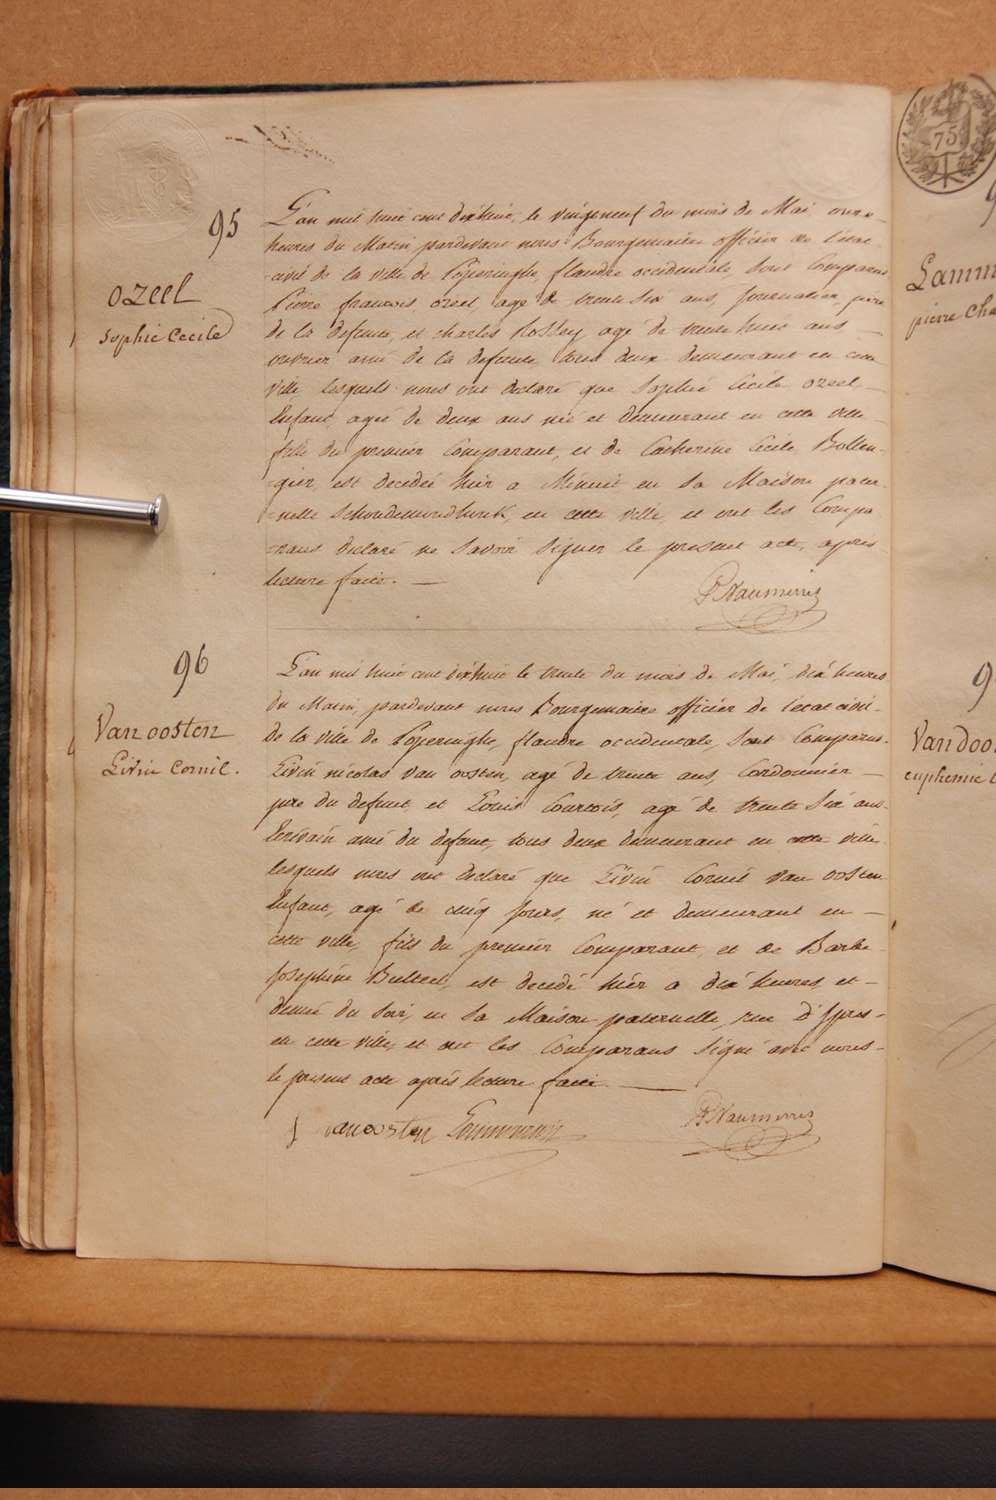 95
ozeel
Sophie Cecile
L'an mil huit cent dixhuit, le vingtneuf du mois de Mai, onze
heures du Matin, pardevant nous Bourgemaitre officier de l'état
civil de la ville de Poperinghe, flandre occidentale, sont Comparus
Pierre francois ozeel, agé de trente six ans, journalier, père
de la defunte, et charles agé de trente huit ans
ouvrier ami de la defunte, tous deux demeurant en cette
ville, lesquels nous ont declaré que Sophie Cecile ozeel
Enfant, agée de deux ans née et demeurant en cette ville
fille du premier Comparant, et de Catherine Cecile Bollen-
gier, est decedée hier a Minuit en sa Maison pater
nelle en cette ville, et ont les Compa
rans declaré ne Savoir Signer le present acte, apres
lecture faite.
96
Van oosten
Livin Cornil.
L'an mil huit cent dixhuit le trente du mois de Mai, dix heures
du Matin, pardevant nous Bourgemaitre officier de l'état civil
de la ville de Poperinghe, flandre occidentale, sont Comparus
Livin nicolas Van oosten, agé de trente ans, Cordonnier
père du defunt et Louis Courtois, agé de trente six ans
Ecrivain ami du defunt, tous deux demeurant en cette ville
lesquels nous ont declaré que Livin Cornil Van oosten
Enfant, agé de cinq jours, né et demeurant en
cette ville, fils du premier Comparant, et de Barbe
Josephine Bulteel, est decedé hier a dix heures et
demie du Soir, en Sa Maison paternelle, rue d'Ypres
en cette ville, et ont les Comparans Signé avec nous
le present acte après lecture faite.
Vanoosten
75
Lamm
pierre Cha
9
Vandoor
euphemie